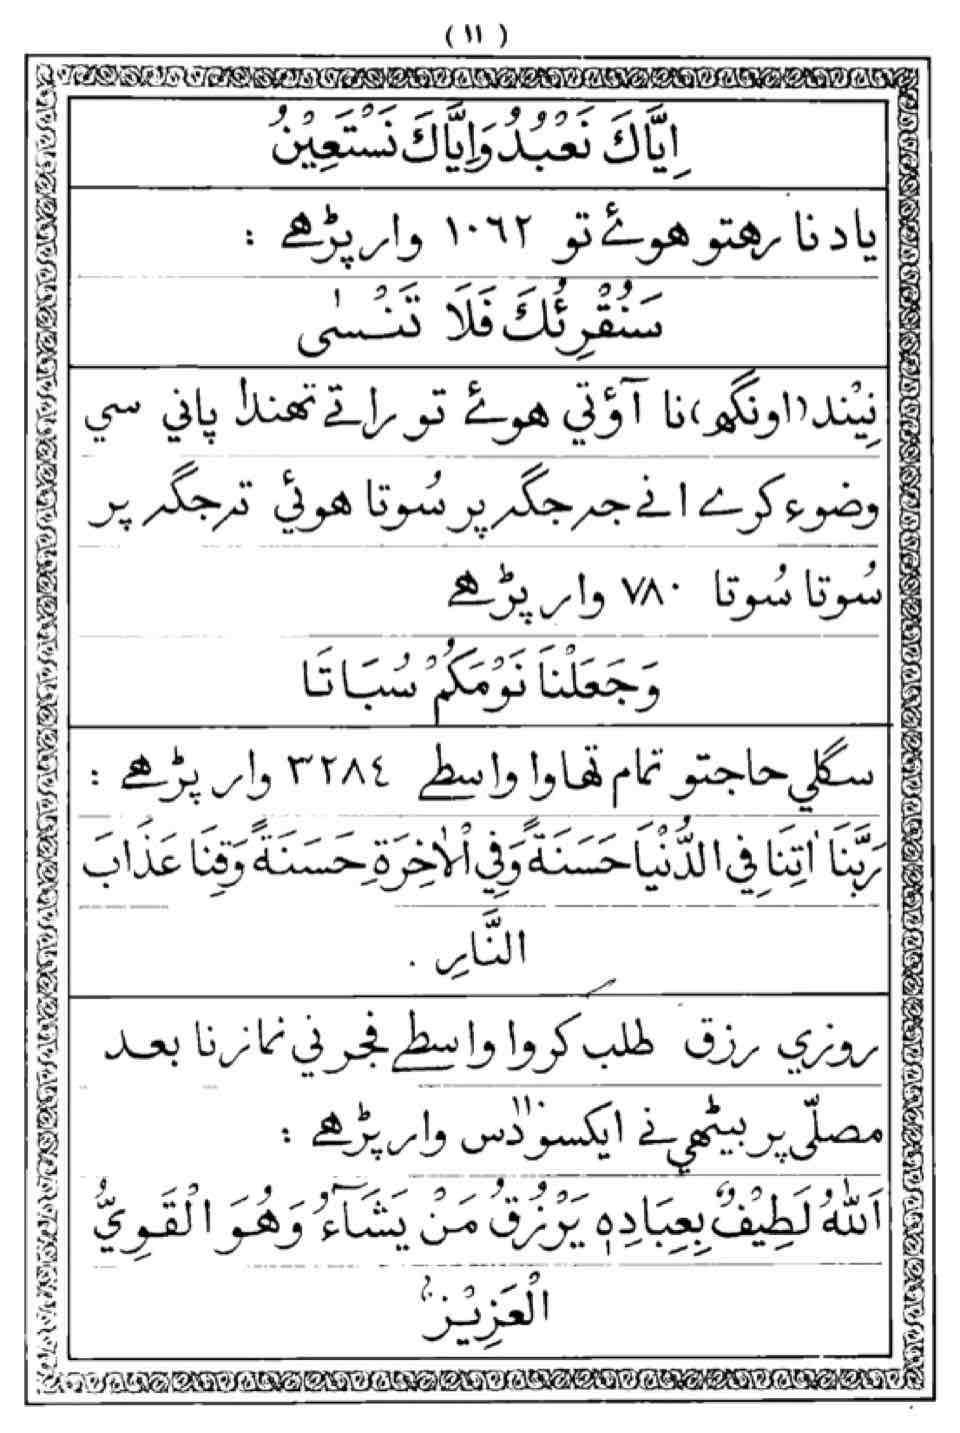 ( ١١ )
اِيَّاكَ نَعْبُدُ وَاِيَّاكَ نَسْتَعِيْنُ
ياد نا رهتو هوئے تو ١٠٦٢ وار پڑهے :
سَنُقْرِئُكَ فَلَا تَنْسٰى
نِيْند (اونگھ) نا آؤتي هوئے تو راتے تهندا پاني سي
وضوء كرے انے جہ جگہ پر سُوتا هوئي تہ جگہ پر
سُوتا سُوتا ٧٨٠ وار پڑهے
وَجَعَلْنَا نَوْمَكُمْ سُبَاتَا
سگلي حاجتو تمام تهاوا واسطے ٣٢٨٤ وار پڑهے :
رَبَّنَا اٰتِنَا فِي الدُّنْيَا حَسَنَةً وَفِي الْاٰخِرَةِ حَسَنَةً وَقِنَا عَذَابَ
النَّارِ .
روزي رزق طلب كروا واسطے فجر ني نماز نا بعد
مصلّى پر بيٹهي نے ايكسو دس وار پڑهے :
اَللّٰهُ لَطِيْفٌ بِعِبَادِهٖ يَرْزُقُ مَنْ يَشَآءُ وَهُوَ الْقَوِيُّ
الْعَزِيْزُ